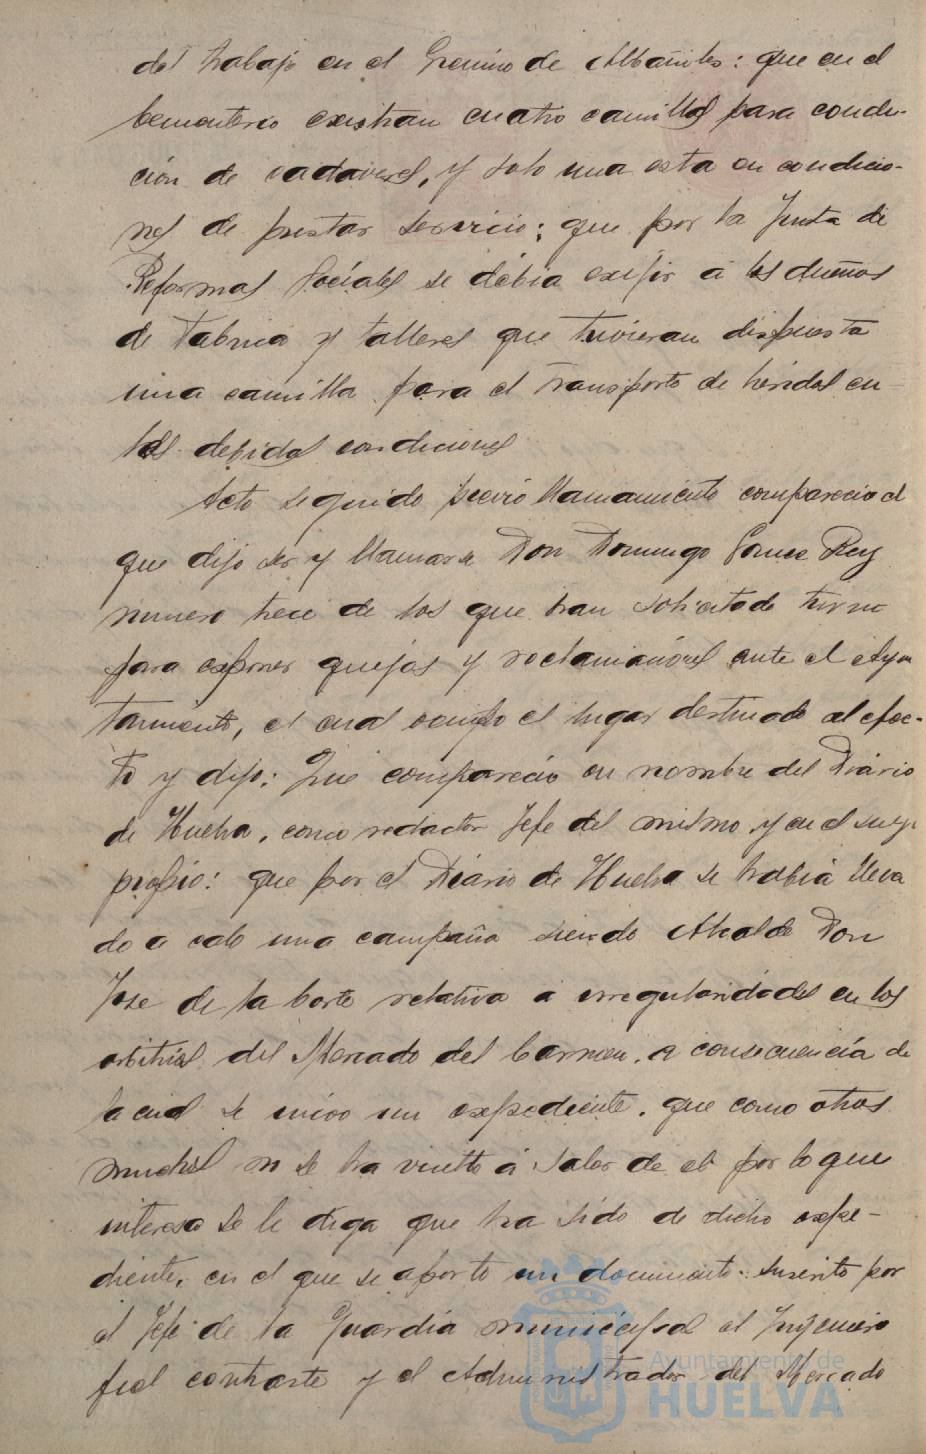 del trabajo en el Gremio de Albañiles: que en el
Cementerio existian cuatro camillas para condu-
ción de cadaveres, y solo una esta en condicio-
nes de prestar servicio; que por la Junta de
Reformas Sociales se débia exijir á los dueños
de Fabrica y talleres que tuvieran dispuesta
una camilla para el transporte de heridos en
las debidas condiciones
Acto seguido previo llamamiento comparecio el
que dijo ser y llamarse Don Domingo Rey
numero trece de los que han solicitado turno
para exponer quejas y reclamaciónes ante el Ayun
tamiento, el cual ocupo el lugar destinado al efec-
to y dijo: Que comparecio en nombre del Diário
de Huelva, como redactor Jefe del mismo y en el suyo
propio: que por el Diario de Huelva se habia lleva
do a cabo una campaña siendo Alcalde Don
Jose de la Corte relativa a irregularidades en los
arbitrios del Mercado del Carmen, a consecuencia de
la cual se inicio un expediente, que como otros
muchos no se ha vuelto á saber de el por lo que
interesa se le diga que ha sido de dicho expe-
diente, en el que se aporto un documento suscrito por
el Jefe de la Guardia municipal el Ingeniero
fiel contraste y el Administrador del Mercado
Ayuntamiento de
HUELVA